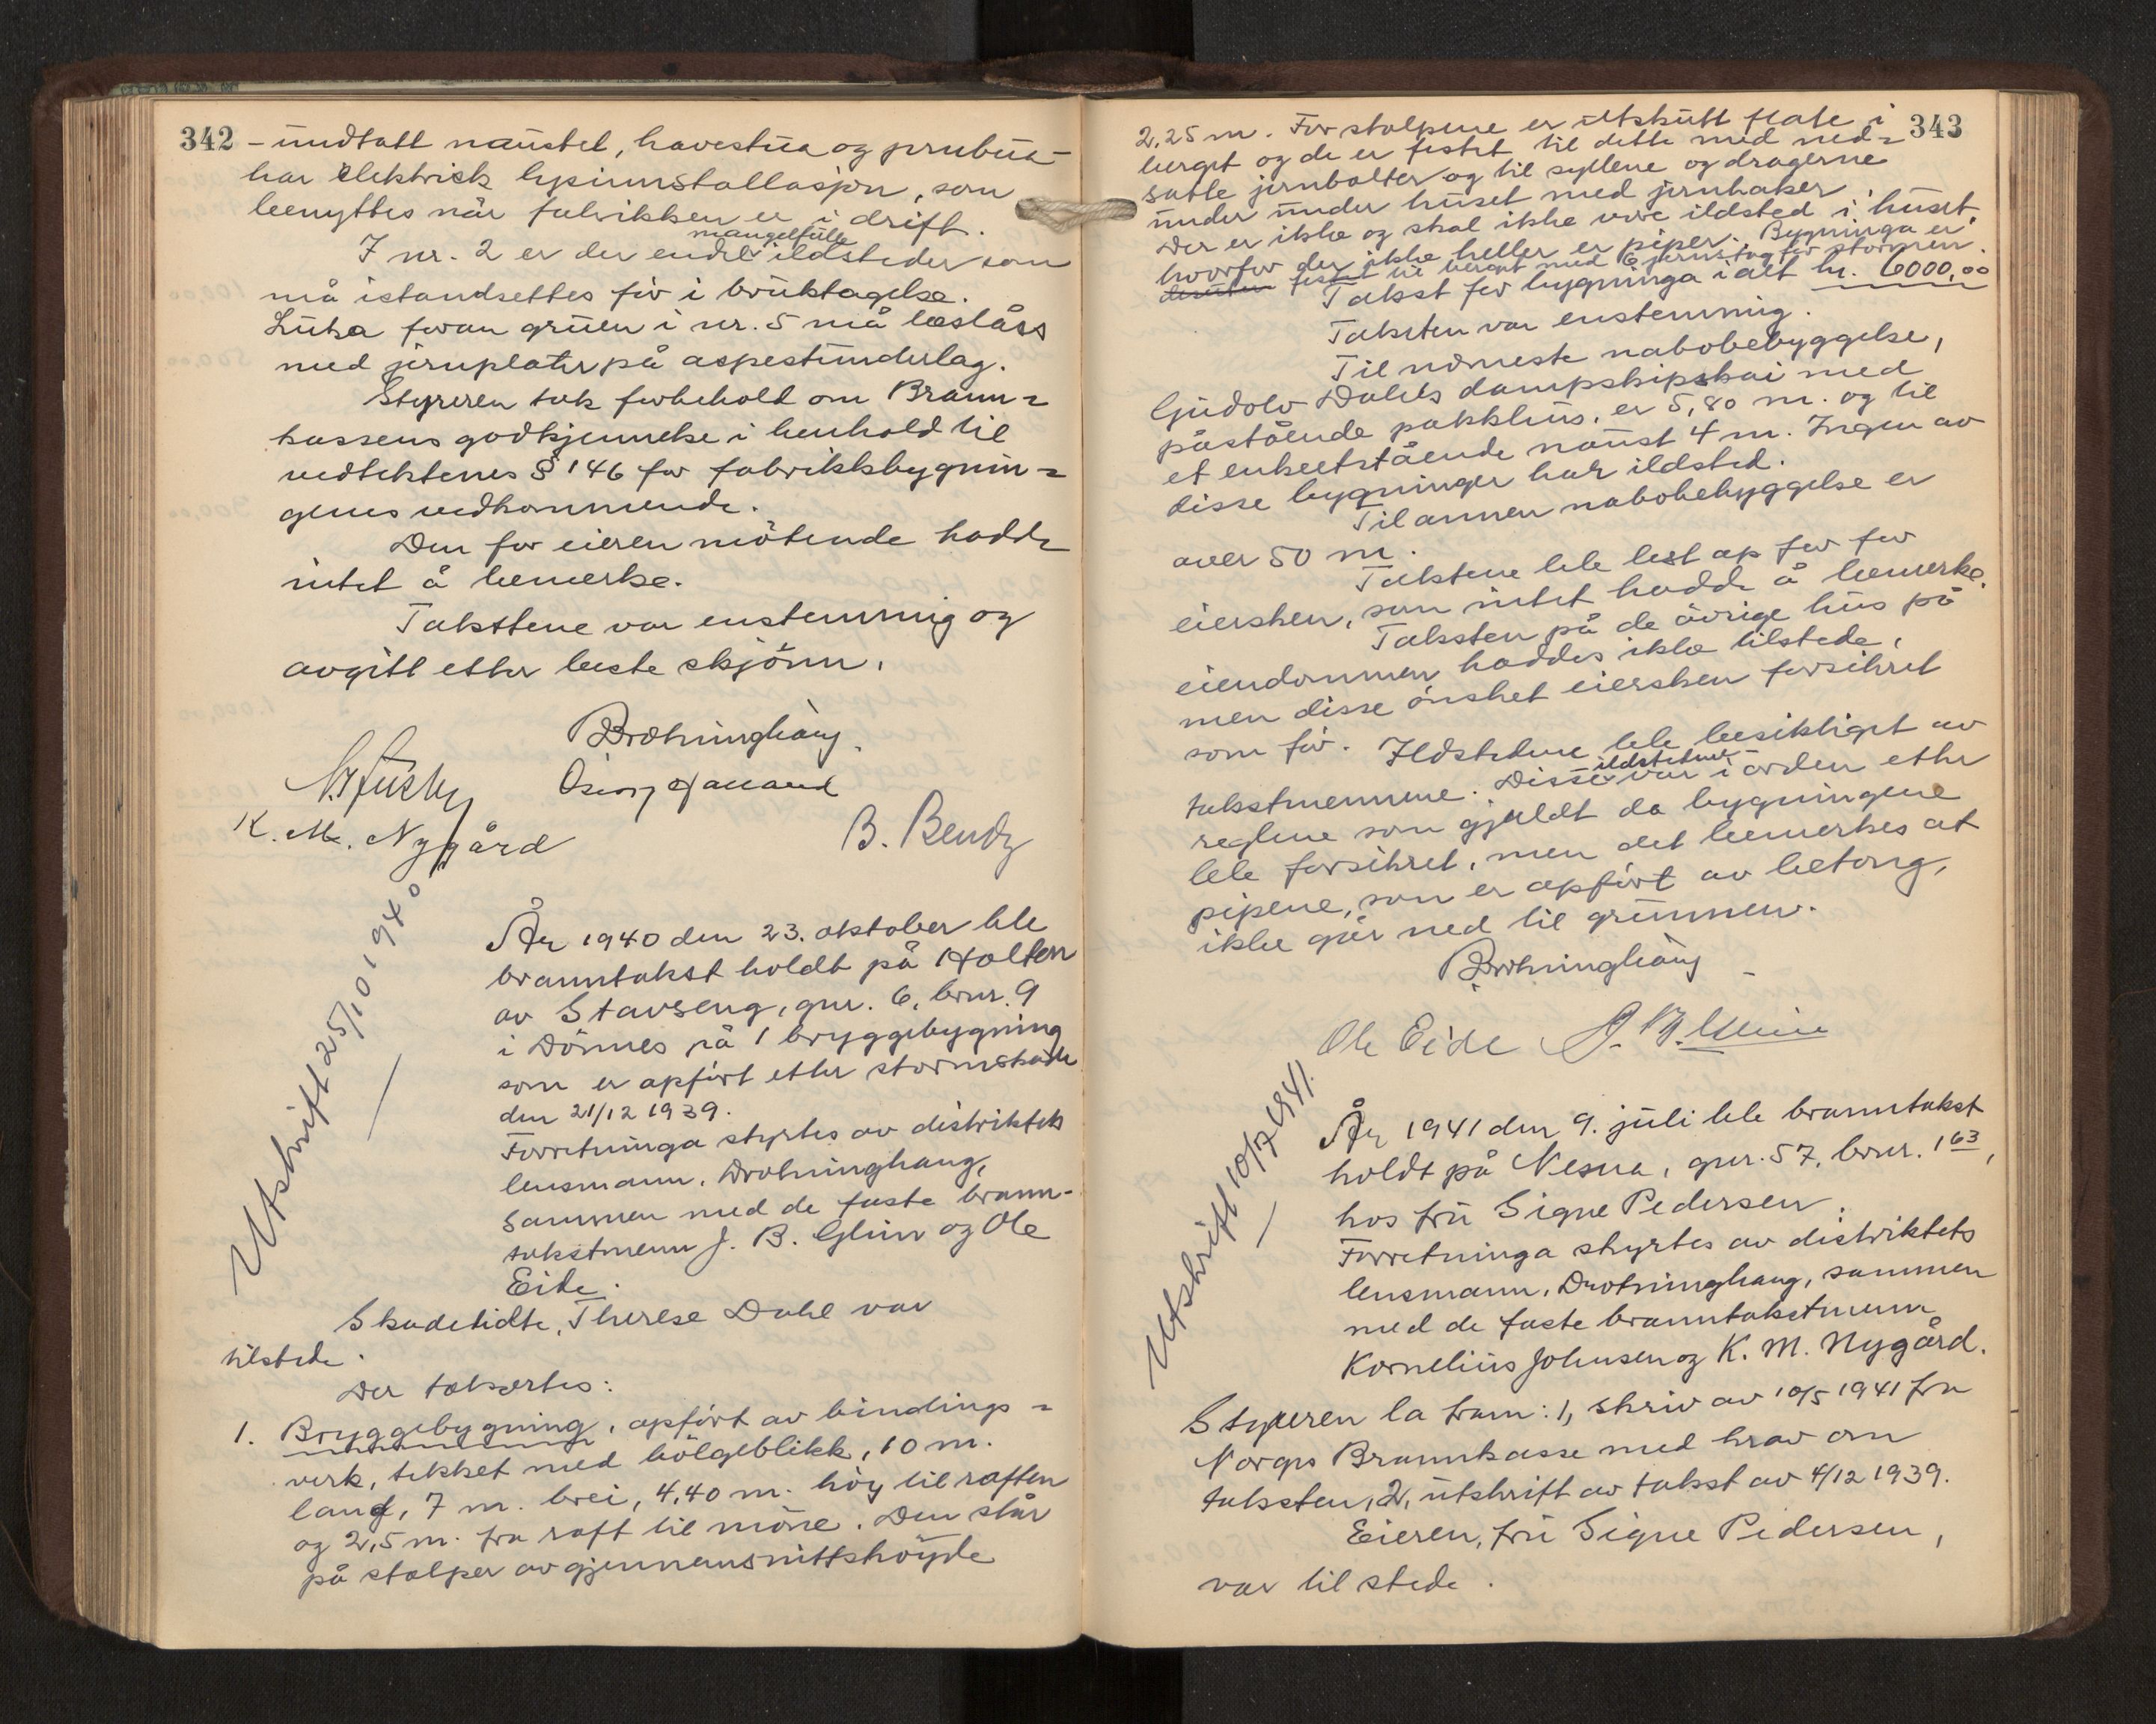 342 - undtatt naustet, havestua og prubua -
har elektrisk lysinnstallasjon, som
benyttes når fabrikken er i drift.
I nr. 2 er der endel mangelfulle ildsteder som
må istandsettes för i bruktagelse.
Luka foran gruen i nr. 5 må beslåes
med jernplater på aspestunderlag.
Styreren tok forbehold om Brann=
kassens godkjennelse i henhold til
vedtektenes § 146 for fabrikkbygnin=
genes vedkommende.
Den for eieren mötende hadde
intet å bemerke.
Takstene var enstemmig og
avgitt etter beste skjönn.
Drotninghaug.
K. M. Nygård
B. Bendz
Utskrift 25/10 1940
År 1940 den 23. oktober ble
branntakst holdt på Holten
av Stavseng, gnr. 6, brnr. 9
i Dönnes på 1 bryggebygning
som er opfört etter stormskade
den 21/12 1939.
Forretninga styrtes av distriktets
lensmann, Drotninghaug,
sammen med de faste brann-
takstmenn J. B. Glein og Ole
Eide.
Skadelidte, Therese Dahl var
tilstede.
Der taksertes:
1. Bryggebygning, opfört av bindings=
verk, tekket med bölgeblikk, 10 m.
lang, 7 m. brei, 4,40 m. höy til raften
og 2,5 m. fra raft til möne. Den står
på stolper av gjennemsnittshöyde
343
2,25 m. For stolpene er utskutt flate i
berget og de er festet til dette med ned=
satte jernbolter og til syllene og dragerne
under under huset med jernhaker.
Der er ikke og skal ikke være ildsted i huset,
hvorfor der ikke heller er piper. Bygninga er
dessuten festet til berget med 6 jernstag for stormen.
Takst for bygninga ialt kr. 6000,00
Taksten var enstemmig.
Til nærmeste nabobebyggelse,
Gudolv Dahls dampskipskai med
påstående pakkhus, er 5,80 m. og til
et enkeltstående naust 4 m. Ingen av
disse bygninger har ildsted.
Til annen nabobebyggelse er
over 50 m.
Takstene ble lest op for for
eiersken, som intet hadde å bemerke.
Taksten på de övrige hus på
eiendommen haddes ikke tilstede,
men disse önsket eiersken forsikret
som för. Ildstedene ble besiktiget av
takstmennene. Disse ildstedene var i orden etter
reglene som gjeldt da bygningene
ble forsikret, men det bemerkes at
pipene, som er opfört av betong,
ikke går ned til grunnen.
Drotninghaug
Ole Eide J. B. Glein
Utskrift 10/7 1941.
År 1941 den 9. juli ble branntakst
holdt på Nesna, gnr. 57, brnr. 163,
hos fru Signe Pedersen.
Forretninga styrtes av distriktets
lensmann, Drotninghaug, sammen
med de faste branntakstmenn
Kornelius Johnsen og K. M. Nygård.
Styreren la fram: 1, skriv av 10/5 1941 fra
Norges Brannkasse med krav om
taksten, 2, utskrift av takst av 4/12 1939.
Eieren, fru Signe Pedersen,
var til stede.